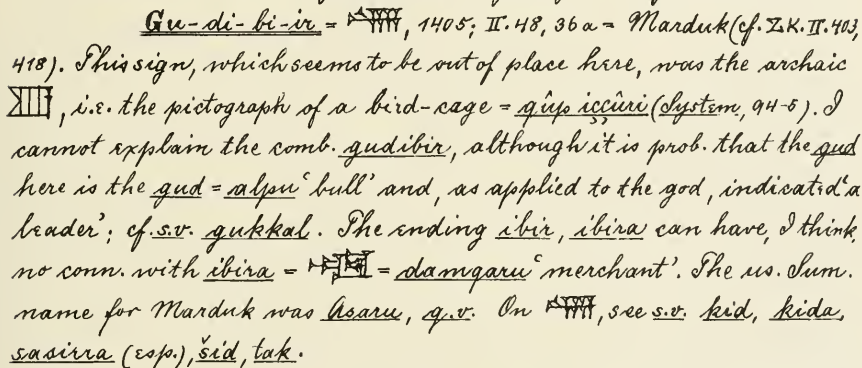 Gu-di-bi-ir = , 1405; II. 48, 36a = Marduk (cf. ZK. II. 403,
418). This sign, which seems to be out of place here, was the archaic
, i.e. the pictograph of a bird-cage = qûp iççûri (System, 94-5). I
cannot explain the comb. gudibir, although it is prob. that the gud
here is the gud = alpu 'bull' and, as applied to the god, indicated 'a
leader'; cf. s.v. gukkal. The ending ibir, ibira can have, I think,
no conn. with ibira = = damqaru 'merchant'. The us. Sum.
name for Marduk was Asaru, q.v. On , see s.v. kid, kida,
sasirra (esp.), šid, tak.